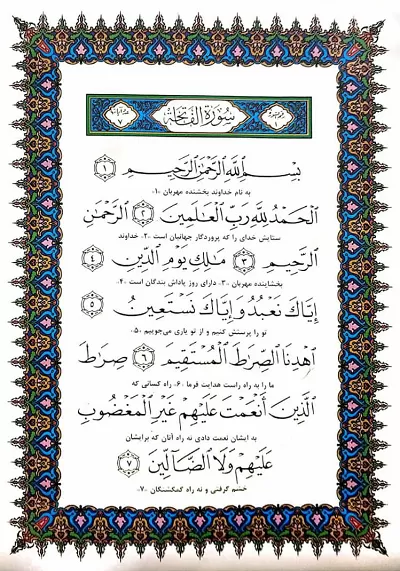 سُورَةُ الفَاتِحَة
بِسْمِ ٱللَّهِ ٱلرَّحْمَٰنِ ٱلرَّحِيمِ ۝١
به نام خداوند بخشنده مهربان ۱۰
ٱلْحَمْدُ لِلَّهِ رَبِّ ٱلْعَٰلَمِينَ ۝٢ ٱلرَّحْمَٰنِ
ستایش خدای را که پروردگار جهانیان است ۲۰ خداوند
ٱلرَّحِيمِ ۝٣ مَٰلِكِ يَوْمِ ٱلدِّينِ ۝٤
بخشاینده مهربان ۳۰ دارای روز پاداش بندگان است ۴۰
إِيَّاكَ نَعْبُدُ وَإِيَّاكَ نَسْتَعِينُ ۝٥
تو را پرستش کنیم و از تو یاری می‌جوییم ۵۰
ٱهْدِنَا ٱلصِّرَٰطَ ٱلْمُسْتَقِيمَ ۝٦ صِرَٰطَ
ما را به راه راست هدایت فرما ۶۰ راه کسانی که
ٱلَّذِينَ أَنْعَمْتَ عَلَيْهِمْ غَيْرِ ٱلْمَغْضُوبِ
به ایشان نعمت دادی نه راه آنان که برایشان
عَلَيْهِمْ وَلَا ٱلضَّآلِّينَ ۝٧
خشم گرفتی و نه راه گمگشتگان ۷۰